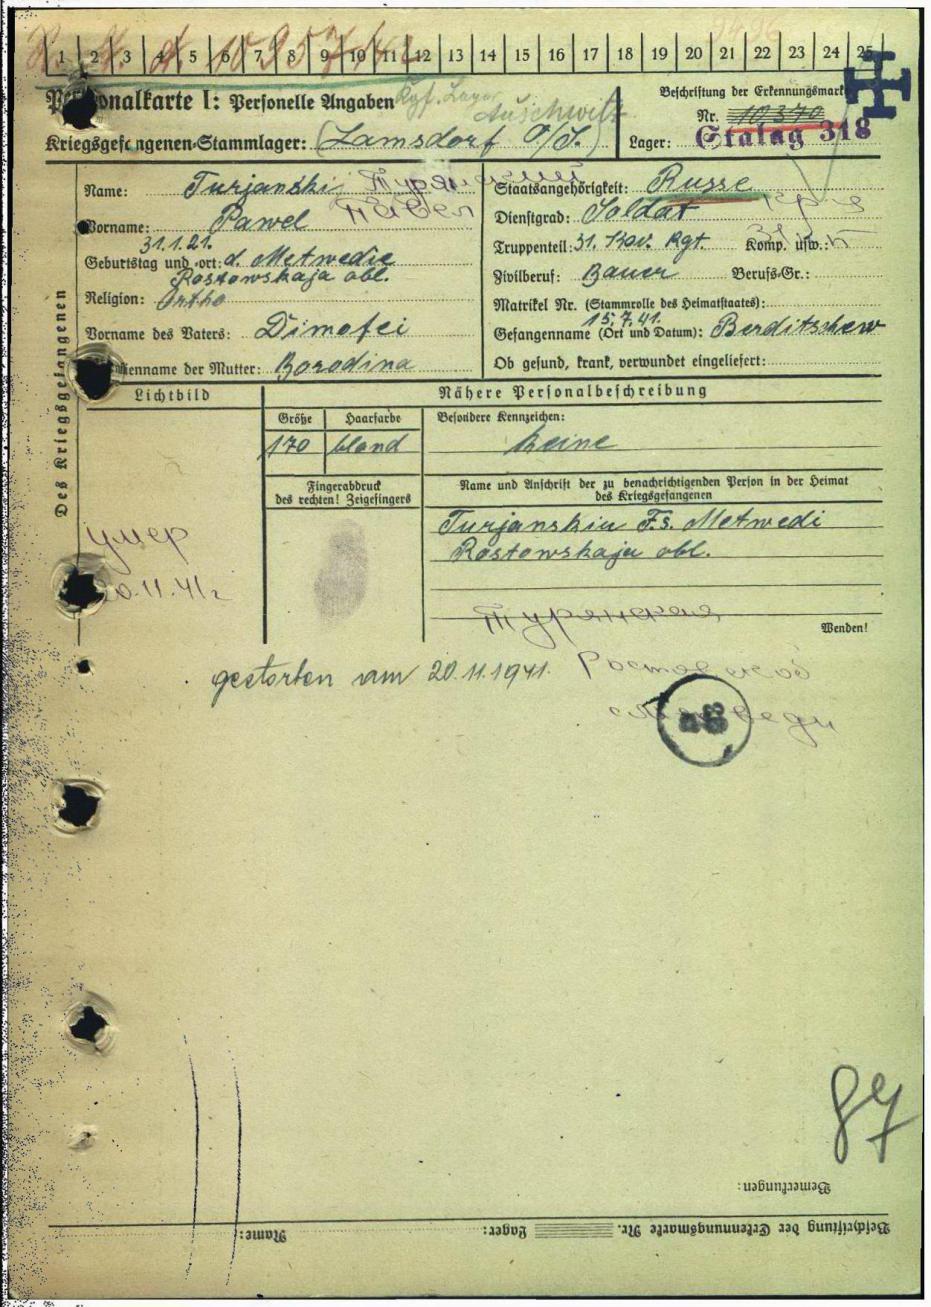 1 2 3 4 5 6 7 8 9 10 11 12 13 14 15 16 17 18 19 20 21 22 23 24 25
onalkarte I: Personelle Angaben
Kgf. Lager Auschwitz
Beschriftung der Erkennungsmarke
Nr. 10370
Kriegsgefangenen-Stammlager: (Lamsdorf O/S.)
Lager: Stalag 318
Des Kriegsgefangenen
Name: Turjanski Турянский
Vorname: Pawel Павел
Geburtstag und -ort: 31.1.21. d. Metwedie
Rostowskaja obl.
Religion: Ortho
Vorname des Vaters: Dimofei
ienname der Mutter: Borodina
Staatsangehörigkeit: Russe
Dienstgrad: Soldat
Truppenteil: 31. Kav. Rgt. Komp. usw.:
Zivilberuf: Bauer Berufs-Gr.:
Matrikel Nr. (Stammrolle des Heimatstaates):
Gefangenname (Ort und Datum): 15.7.41. Berditschew
Ob gesund, krank, verwundet eingeliefert:
Lichtbild
Nähere Personalbeschreibung
Größe Haarfarbe
170 bland
Besondere Kennzeichen:
keine
Fingerabdruck
des rechten! Zeigefingers
Name und Anschrift der zu benachrichtigenden Person in der Heimat
des Kriegsgefangenen
Turjanskiu Fs. Metwedi
Rostowskaja obl.
умер
20.11.41г
Турянская
Wenden!
gestorben am 20.11.1941.
Ростовской
87
Bemerkungen:
Beschriftung der Erkennungsmarke Nr. Lager: Name: